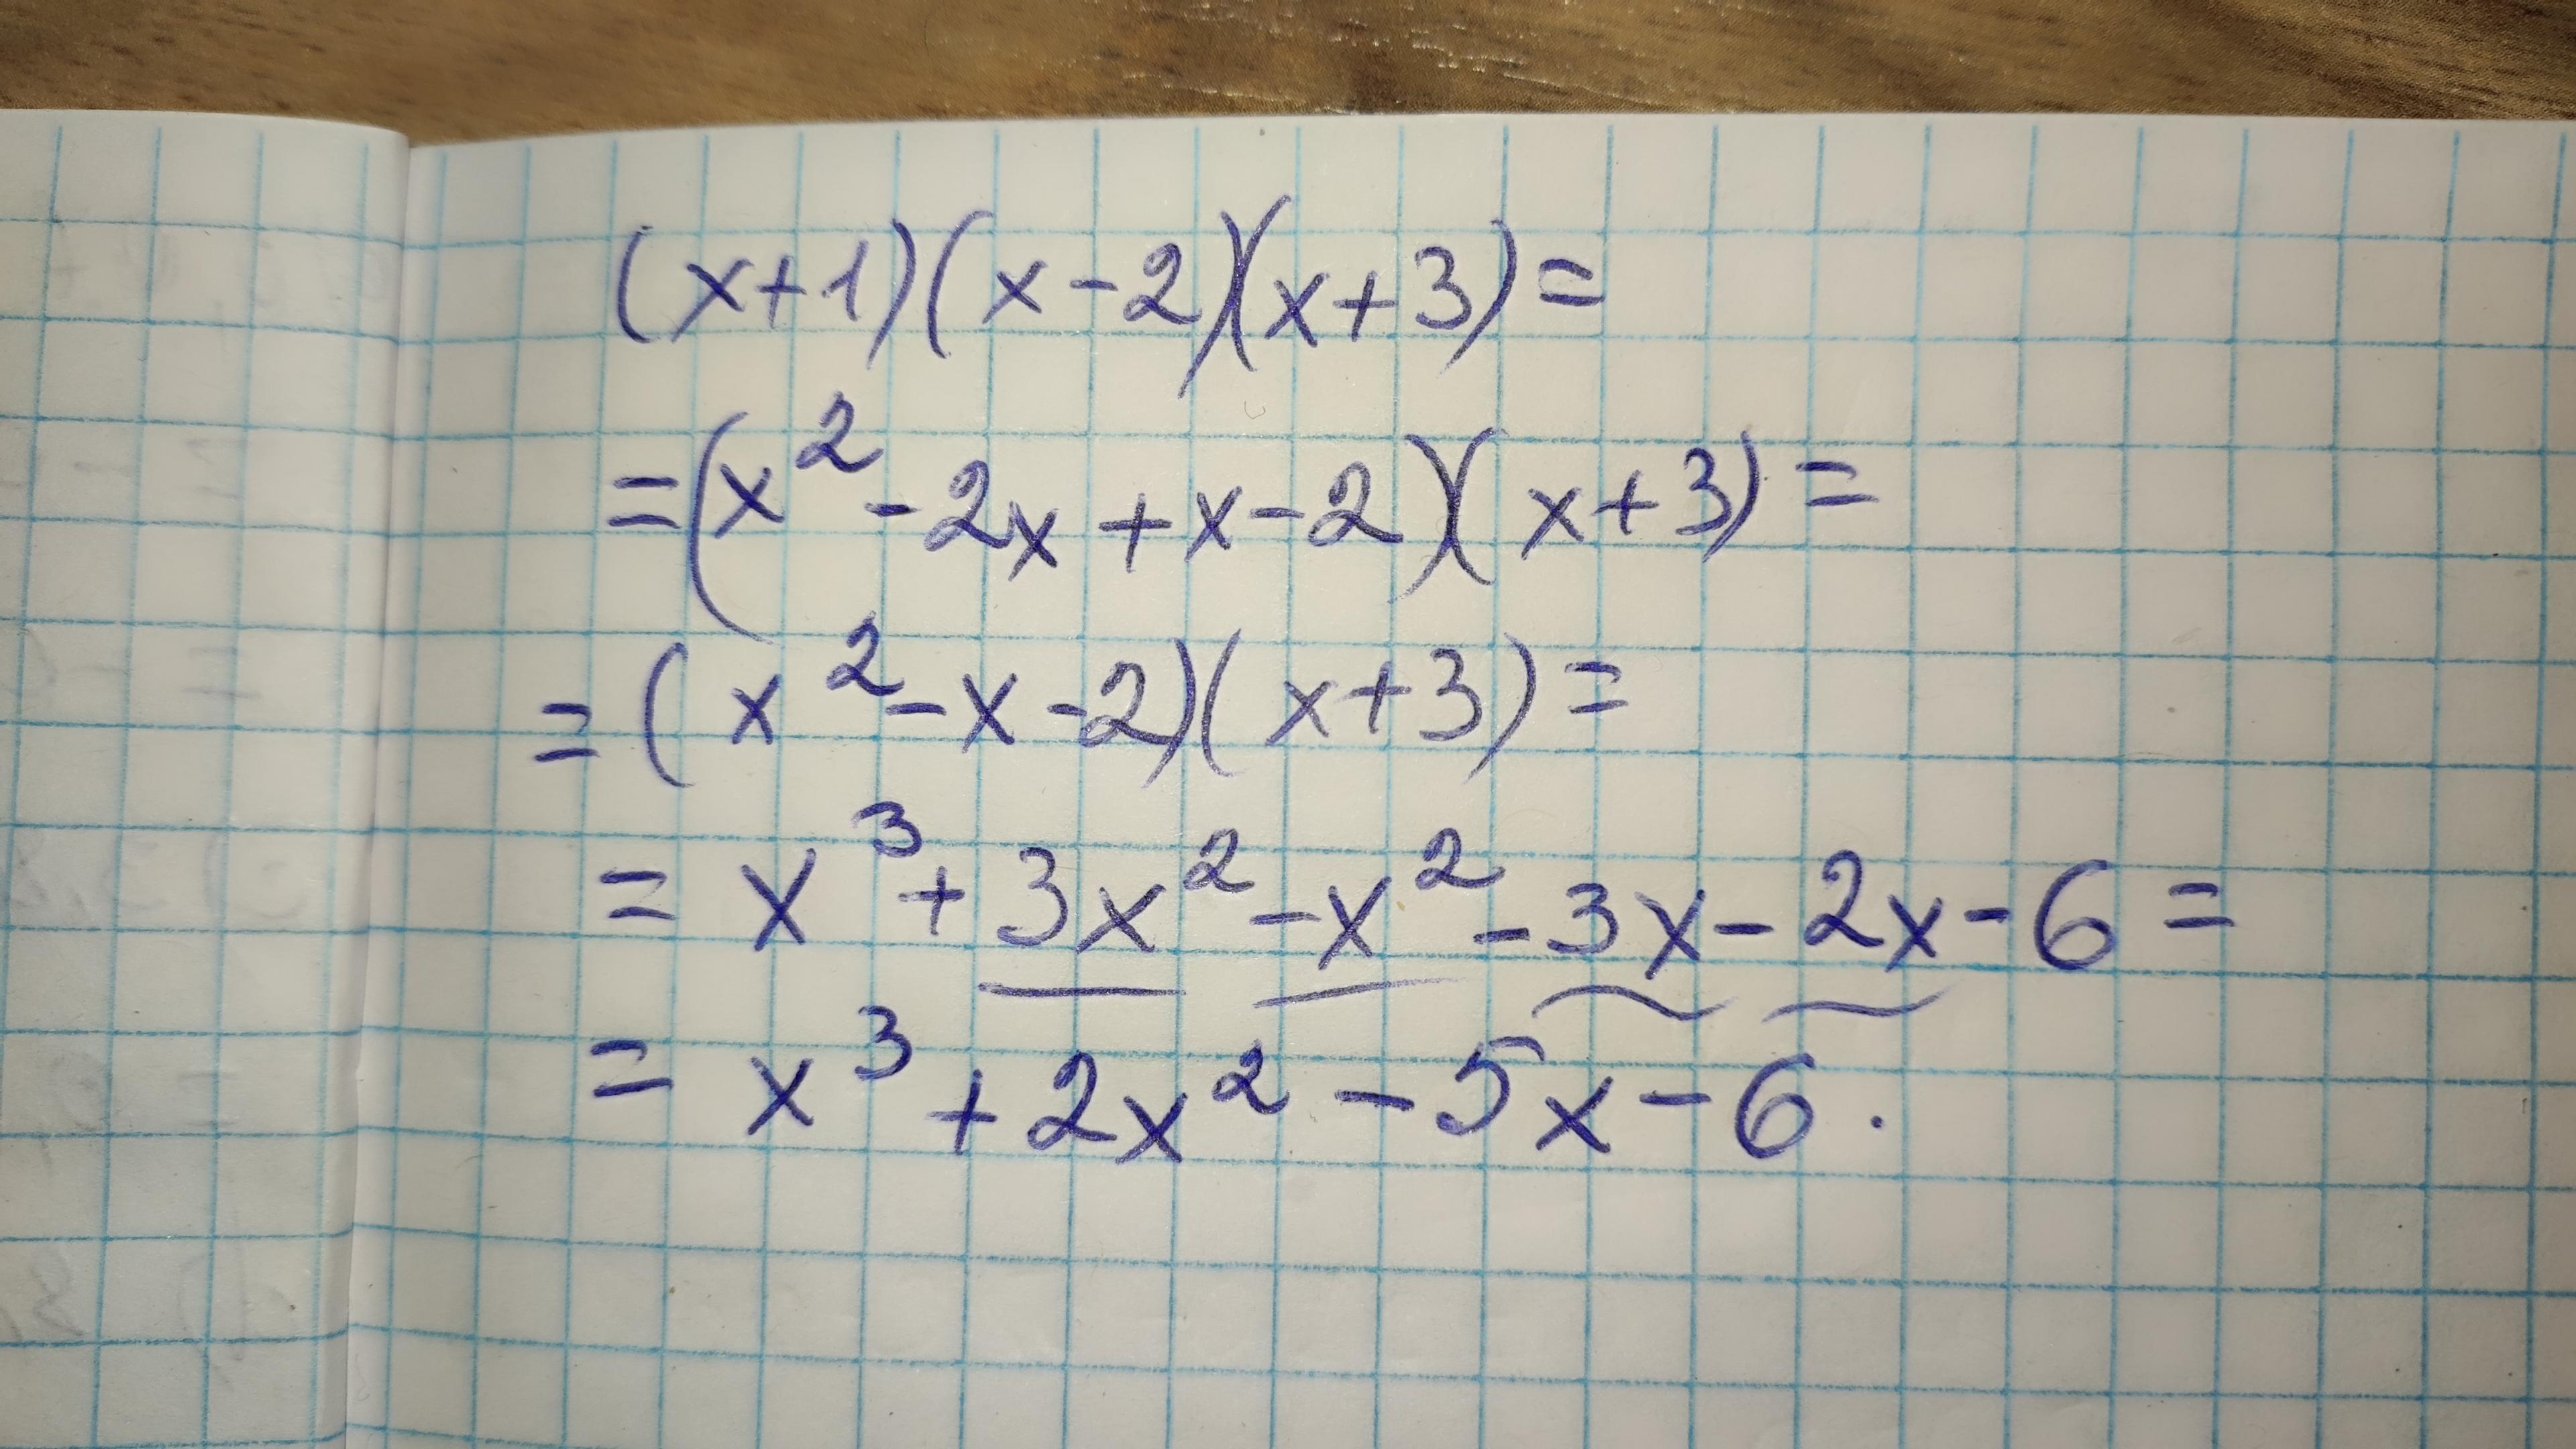 (x+1)(x-2)(x+3)=
=(x²-2x+x-2)(x+3)=
=(x²-x-2)(x+3)=
=x³+3x²-x²-3x-2x-6=
=x³+2x²-5x-6.